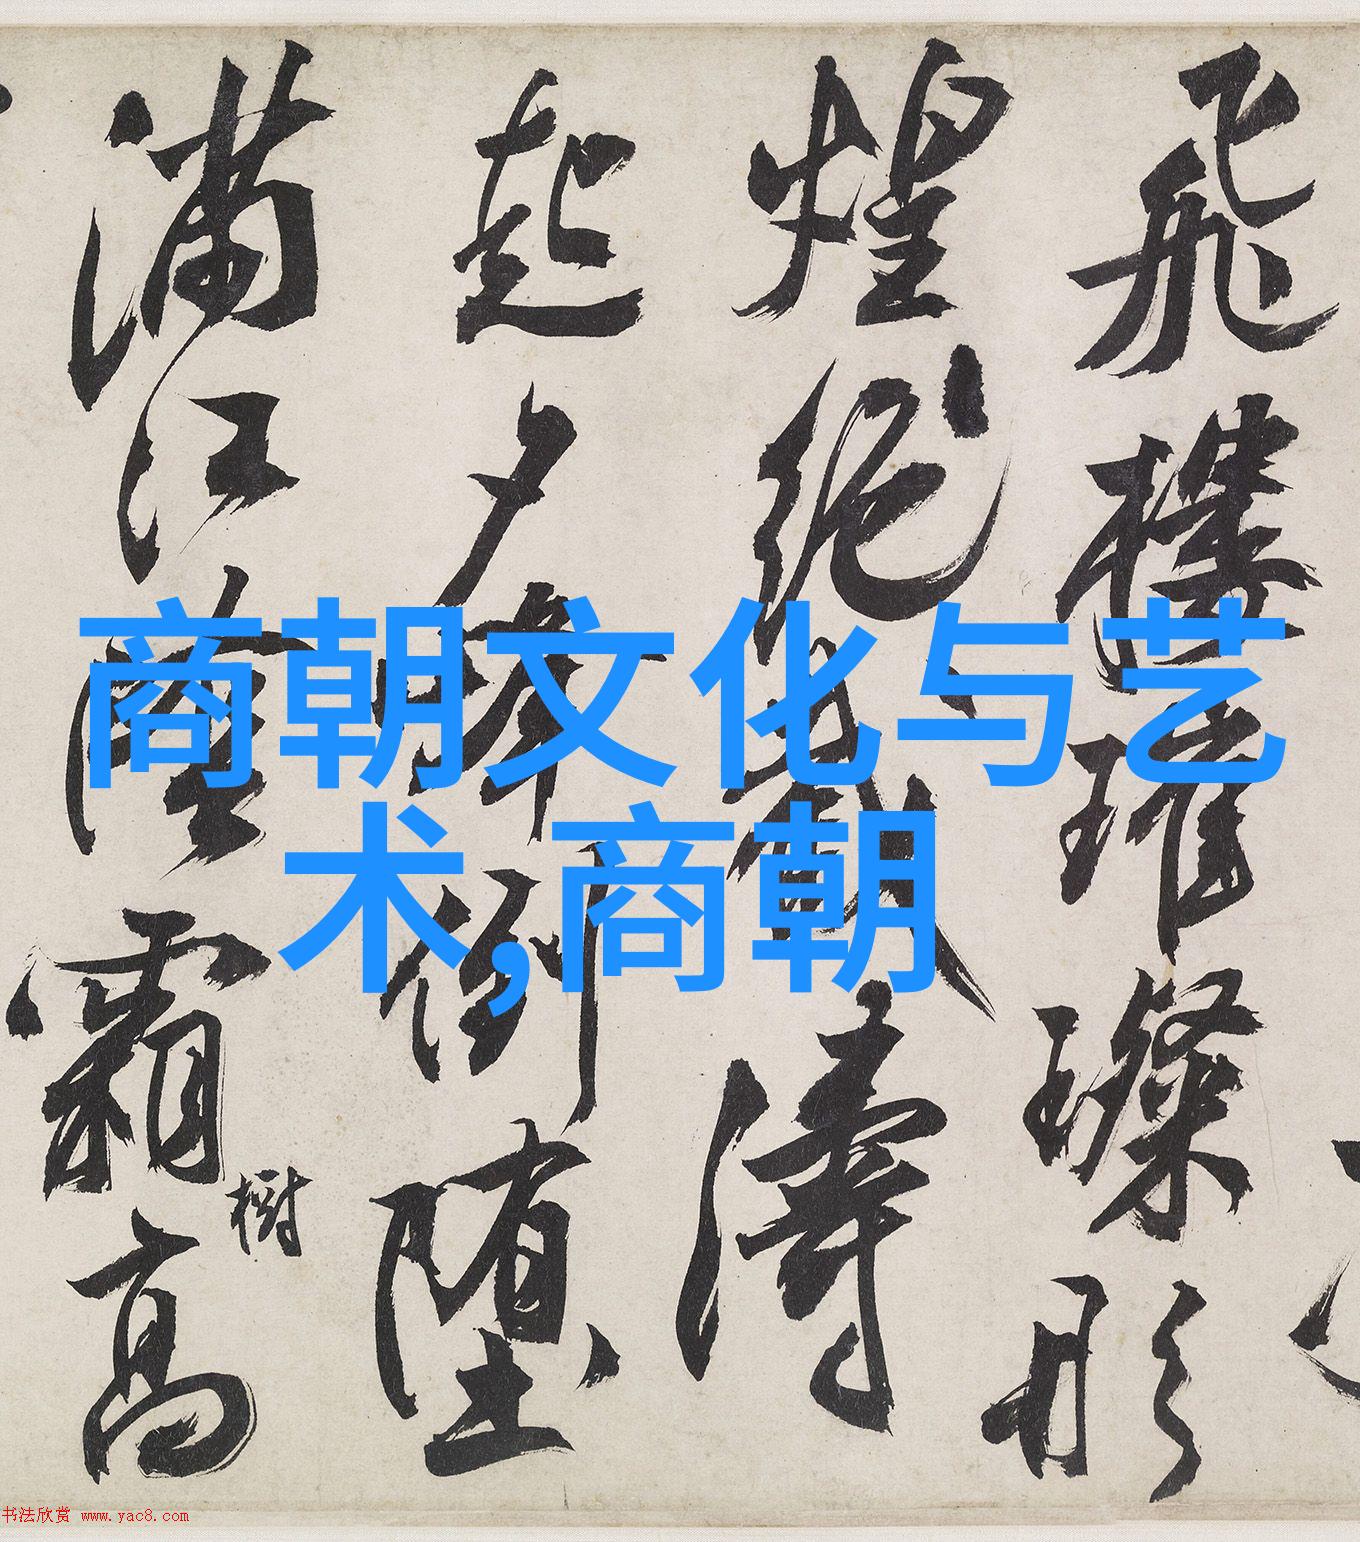 商朝文化与艺
术,商朝
飛樓璀璨形
煌純濤
起夕峰倒墮
滿江陰霜高
樹
书法欣赏 www.yac8.com